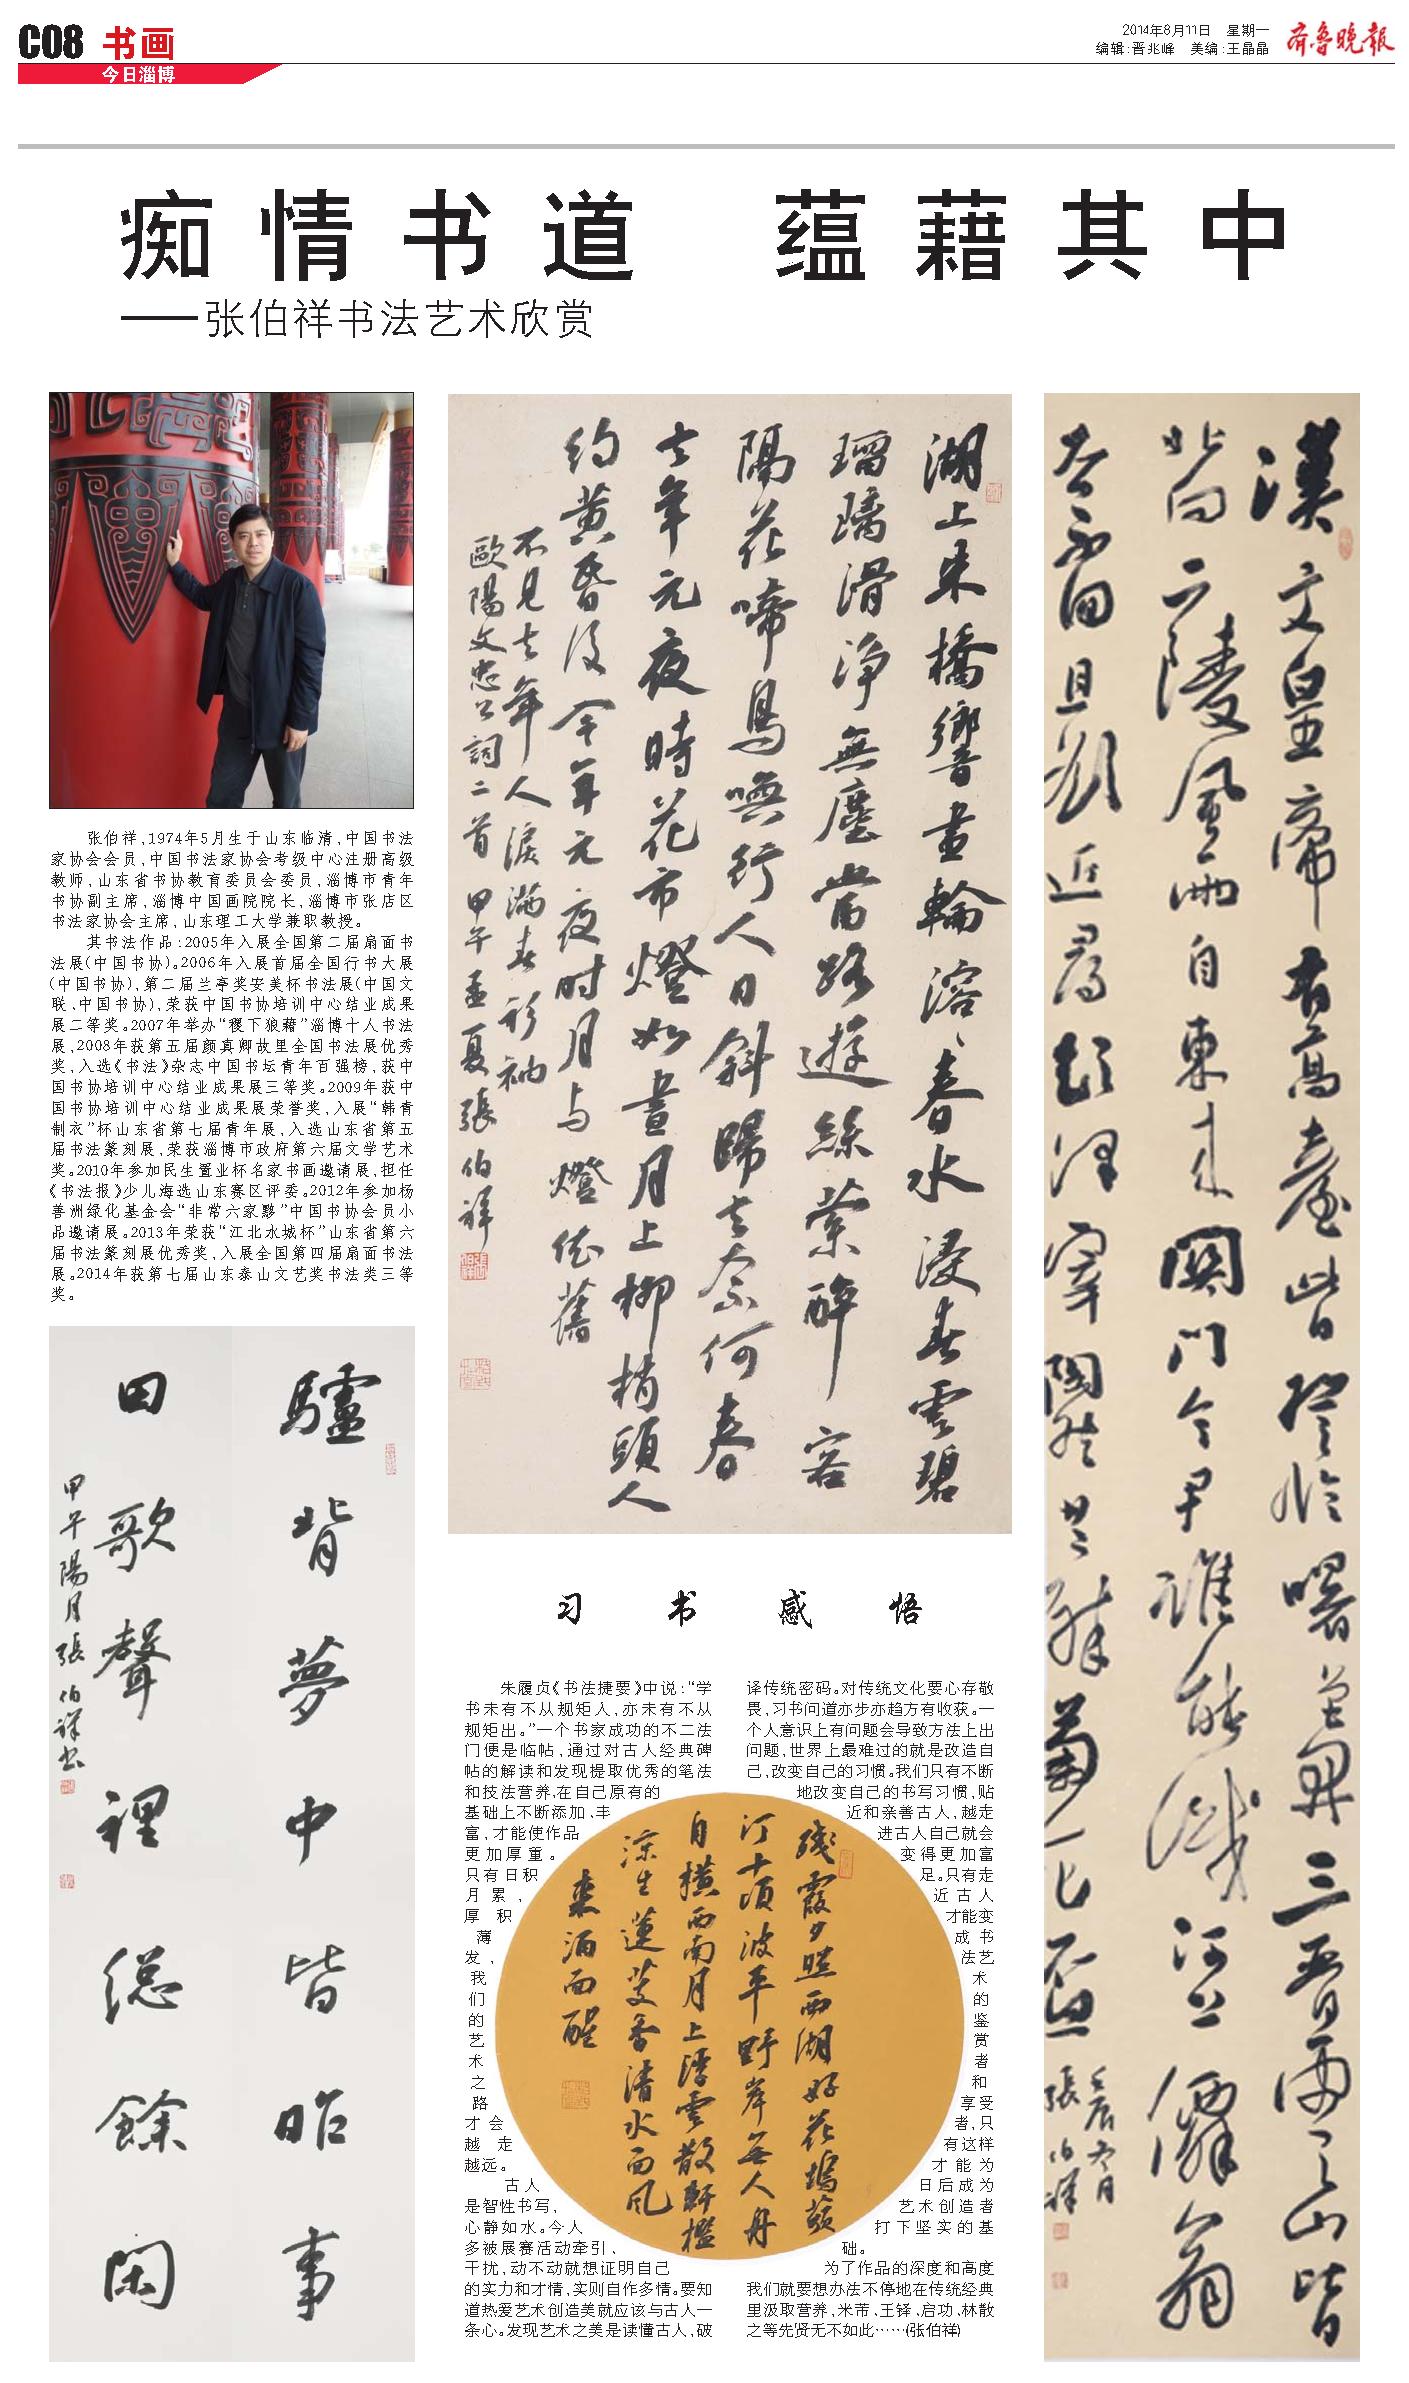 C08 书画
今日淄博
2014年8月11日 星期一
编辑:晋兆峰 美编:王晶晶
齐鲁晚报
痴情书道 蕴藉其中
——张伯祥书法艺术欣赏
张伯祥,1974年5月生于山东临清,中国书法
家协会会员,中国书法家协会考级中心注册高级
教师,山东省书协教育委员会委员,淄博市青年
书协副主席,淄博中国画院院长,淄博市张店区
书法家协会主席,山东理工大学兼职教授。
其书法作品:2005年入展全国第二届扇面书
法展(中国书协)。2006年入展首届全国行书大展
(中国书协),第二届兰亭奖安美杯书法展(中国文
联、中国书协),荣获中国书协培训中心结业成果
展二等奖。2007年举办“稷下狼藉”淄博十人书法
展,2008年获第五届颜真卿故里全国书法展优秀
奖,入选《书法》杂志中国书坛青年百强榜,获中
国书协培训中心结业成果展三等奖。2009年获中
国书协培训中心结业成果展荣誉奖,入展“韩青
制衣”杯山东省第七届青年展,入选山东省第五
届书法篆刻展,荣获淄博市政府第六届文学艺术
奖。2010年参加民生置业杯名家书画邀请展,担任
《书法报》少儿海选山东赛区评委。2012年参加杨
善洲绿化基金会“非常六家夥”中国书协会员小
品邀请展。2013年荣获“江北水城杯”山东省第六
届书法篆刻展优秀奖,入展全国第四届扇面书法
展。2014年获第七届山东泰山文艺奖书法类三等
奖。
驢背夢中皆昨事
田歌聲裡總餘閑
甲午陽月張伯祥书
湖上朱橋響畫輪溶溶春水浸春雲碧
瑠璃滑净無塵當路遊絲縈醉客
隔花啼鳥喚行人日斜歸去奈何春
去年元夜時花市燈如晝月上柳梢頭人
约黄昏後今年元夜时月与燈依舊
不見去年人淚满春衫袖
歐陽文忠公詞二首 甲午孟夏張伯祥
漢文皇帝有高臺此日登临曙色開三晋雲山皆
北向二陵風雨自東来關门令尹谁能识河上僊翁
去不回且欲近尋彭泽宰陶然共醉菊花盃
壬辰冬月
張伯祥
习书感悟
朱履贞《书法捷要》中说:“学
书未有不从规矩入,亦未有不从
规矩出。”一个书家成功的不二法
门便是临帖,通过对古人经典碑
帖的解读和发现提取优秀的笔法
和技法营养,在自己原有的
基础上不断添加、丰
富,才能使作品
更加厚重。
只有日积
月累,
厚积
薄
发,
我
们
的
艺
术
之
路
才会
越走
越远。
古人
是智性书写,
心静如水。今人
多被展赛活动牵引、
干扰,动不动就想证明自己
的实力和才情,实则自作多情。要知
道热爱艺术创造美就应该与古人一
条心。发现艺术之美是读懂古人,破
译传统密码。对传统文化要心存敬
畏,习书问道亦步亦趋方有收获。一
个人意识上有问题会导致方法上出
问题,世界上最难过的就是改造自
己,改变自己的习惯。我们只有不断
地改变自己的书写习惯,贴
近和亲善古人,越走
进古人自己就会
变得更加富
足。只有走
近古人
才能变
成书
法艺
术
的
鉴
赏
者
和
享受
者,只
有这样
才能为
日后成为
艺术创造者
打下坚实的基
础。
为了作品的深度和高度
我们就要想办法不停地在传统经典
里汲取营养,米芾、王铎、启功、林散
之等先贤无不如此……(张伯祥)
残霞夕照西湖好花坞蘋
汀十頃波平野岸無人舟
自横西南月上浮雲散軒檻
涼生蓮芰香清水面风
来酒面醒